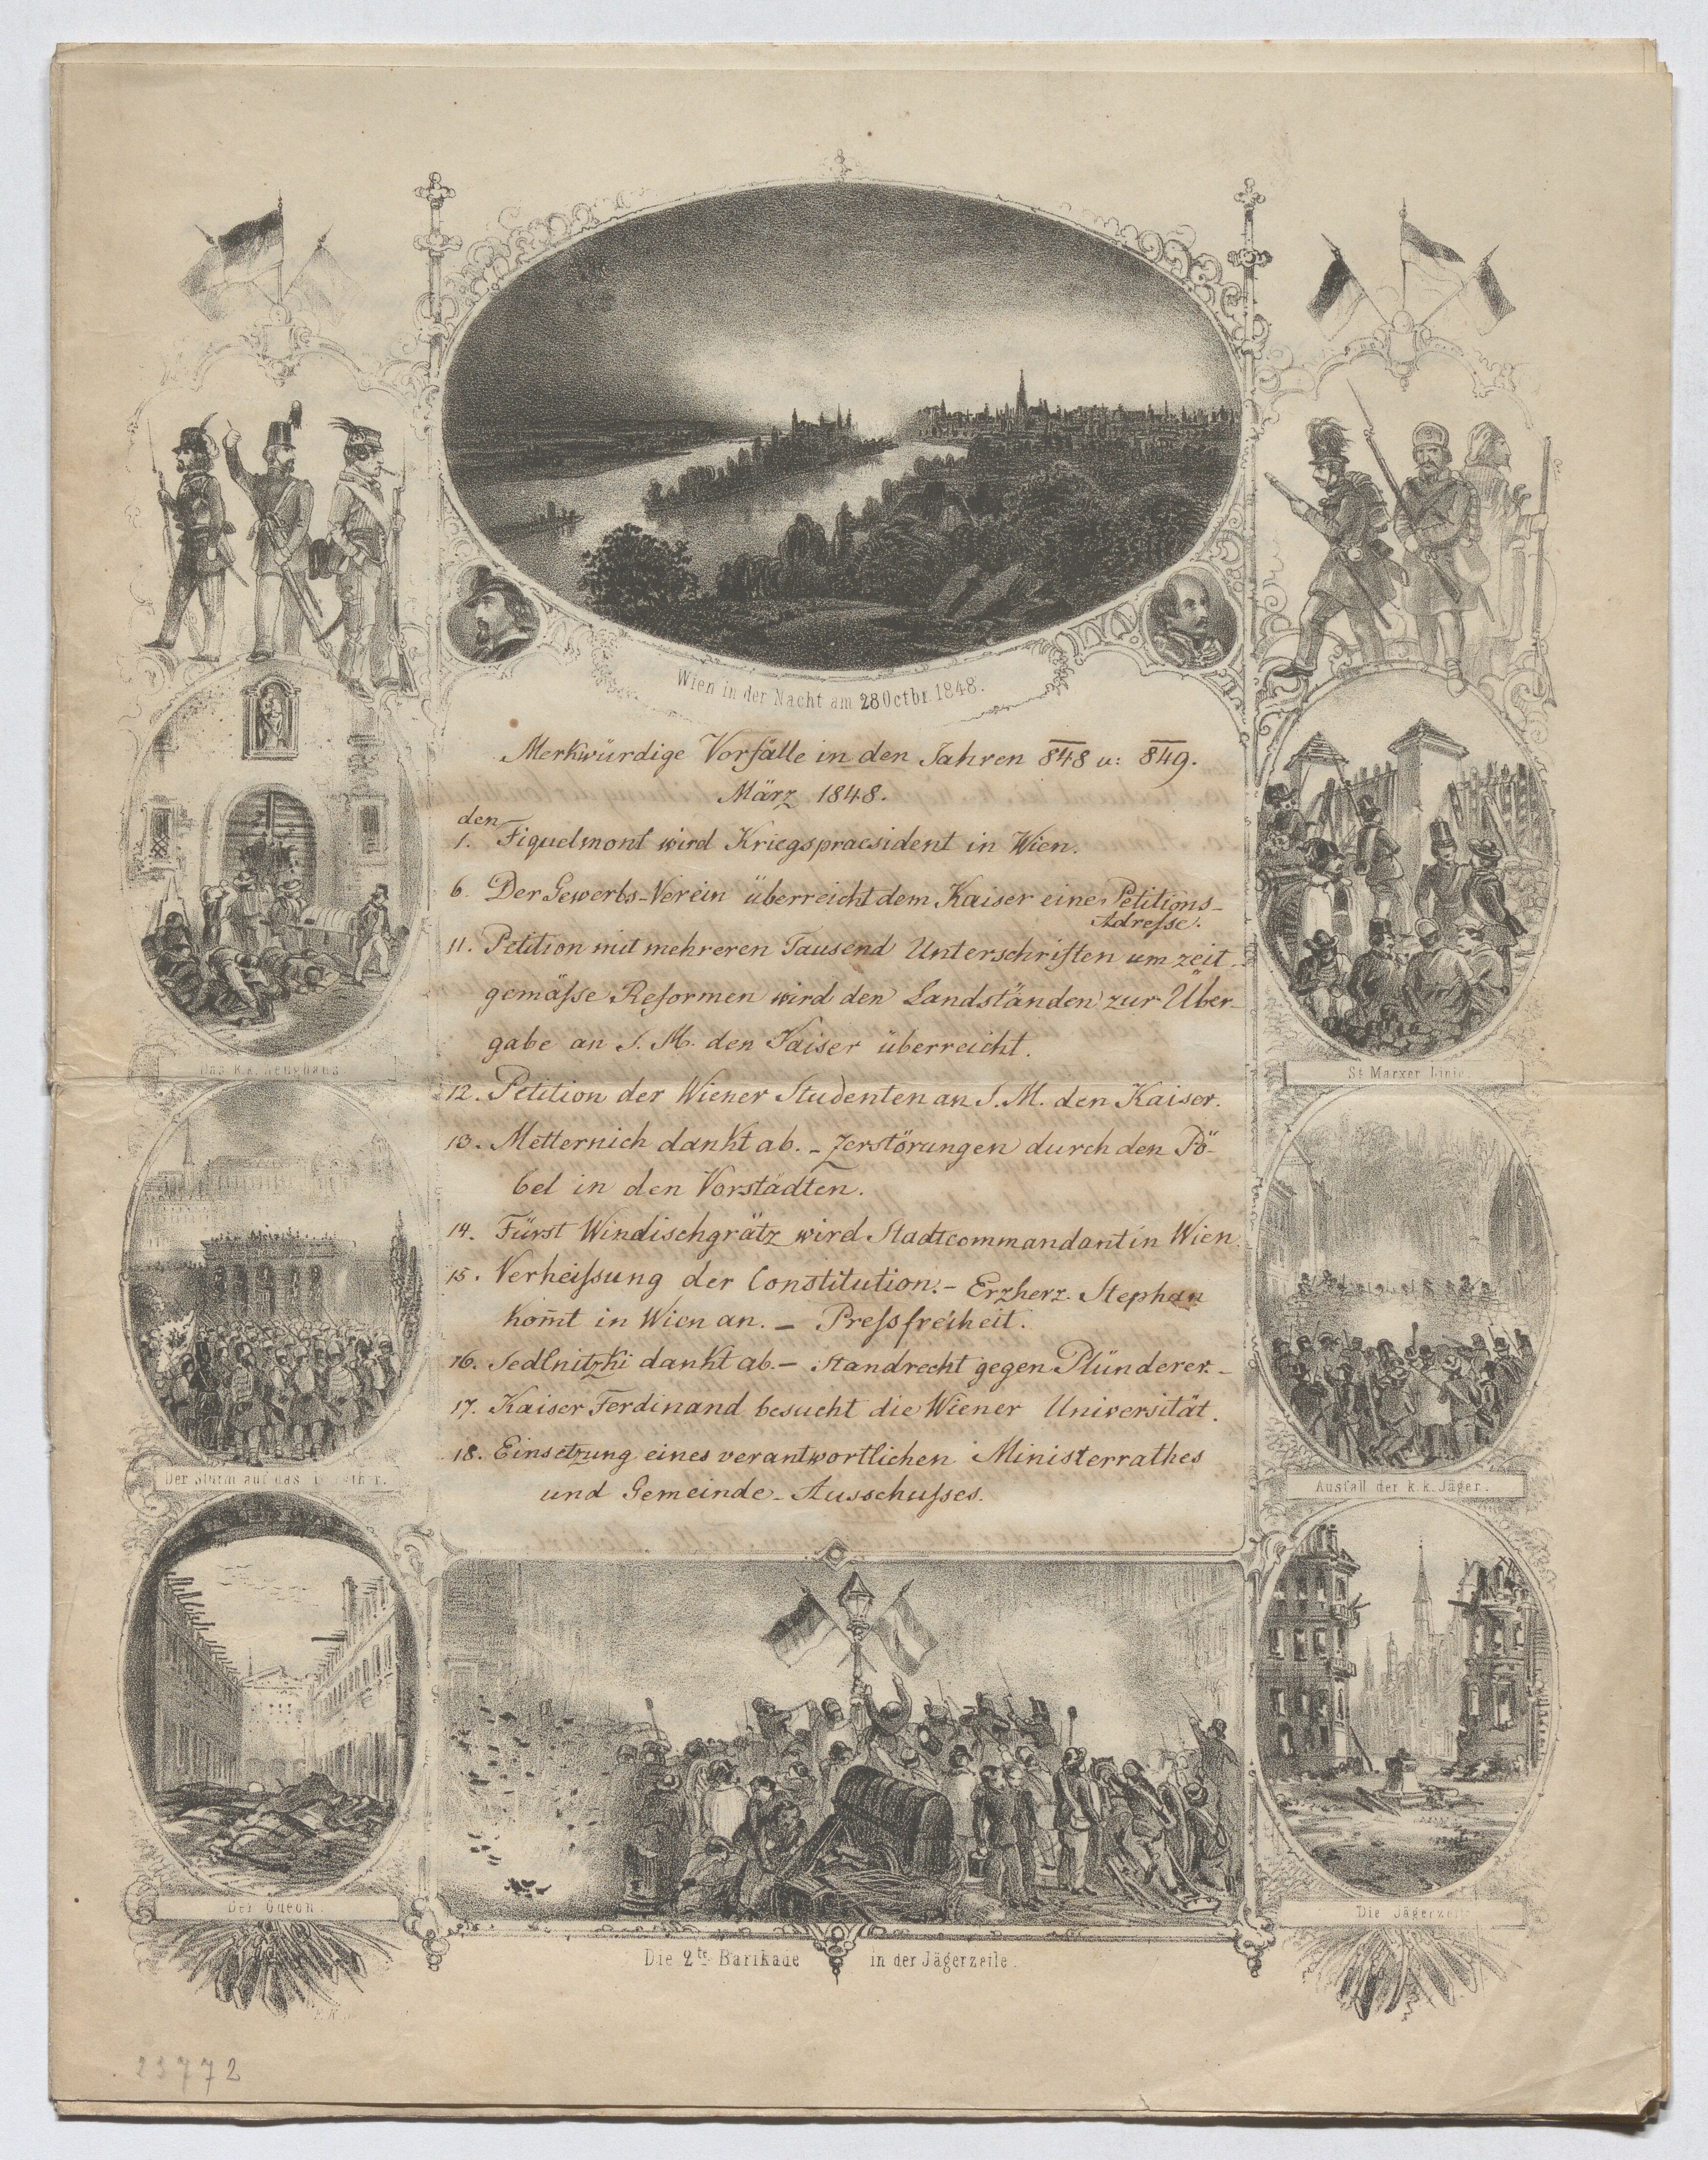 Wien in der Nacht am 28 Octbr. 1848.
Merkwürdige Vorfälle in den Jahren 848 u: 849.
März 1848.
den
1. Fiquelmont wird Kriegspraesident in Wien.
6. Der Gewerbs-Verein überreicht dem Kaiser eine Petitions-
Adresse.
11. Petition mit mehreren Tausend Unterschriften um zeit-
gemässe Reformen wird den Landständen zur Über-
gabe an S. M. den Kaiser überreicht.
12. Petition der Wiener Studenten an S. M. den Kaiser.
13. Metternich dankt ab. – Zerstörungen durch den Pö-
bel in den Vorstädten.
14. Fürst Windischgrätz wird Stadtcommandant in Wien.
15. Verheissung der Constitution. – Erzherz. Stephan
kom̄t in Wien an. – Pressfreiheit.
16. Sedlnitzki dankt ab. – Standrecht gegen Plünderer. –
17. Kaiser Ferdinand besucht die Wiener Universität.
18. Einsetzung eines verantwortlichen Ministerrathes
und Gemeinde-Ausschusses.
Das k.k. Zeughaus
St Marxer Linie.
Der Sturm auf das
Ausfall der k.k. Jäger.
Der Odeon.
Die Jägerzeile
Die 2te Barikade in der Jägerzeile.
23772